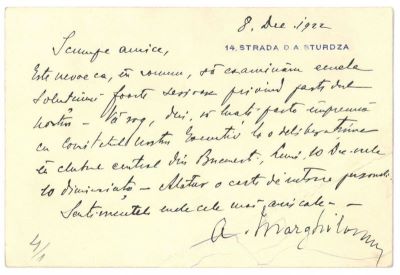 8. Dec 1922
14, STRADA D. A. STURDZA
Scumpe amice,
Este nevoe ca, în comun, să examinăm unele
soluțiuni foarte serioase privind partidul
nostru – Vă rog, deci, să luați parte împreună
cu Comitetul nostru Executiv la o deliberațiune
în clubul central din București, Luni, 10 Dec.
10 dimineața – Alătur o carte de intrare personală
Sentimentele mele cele mai amicale –
A. Marghiloman
4/1